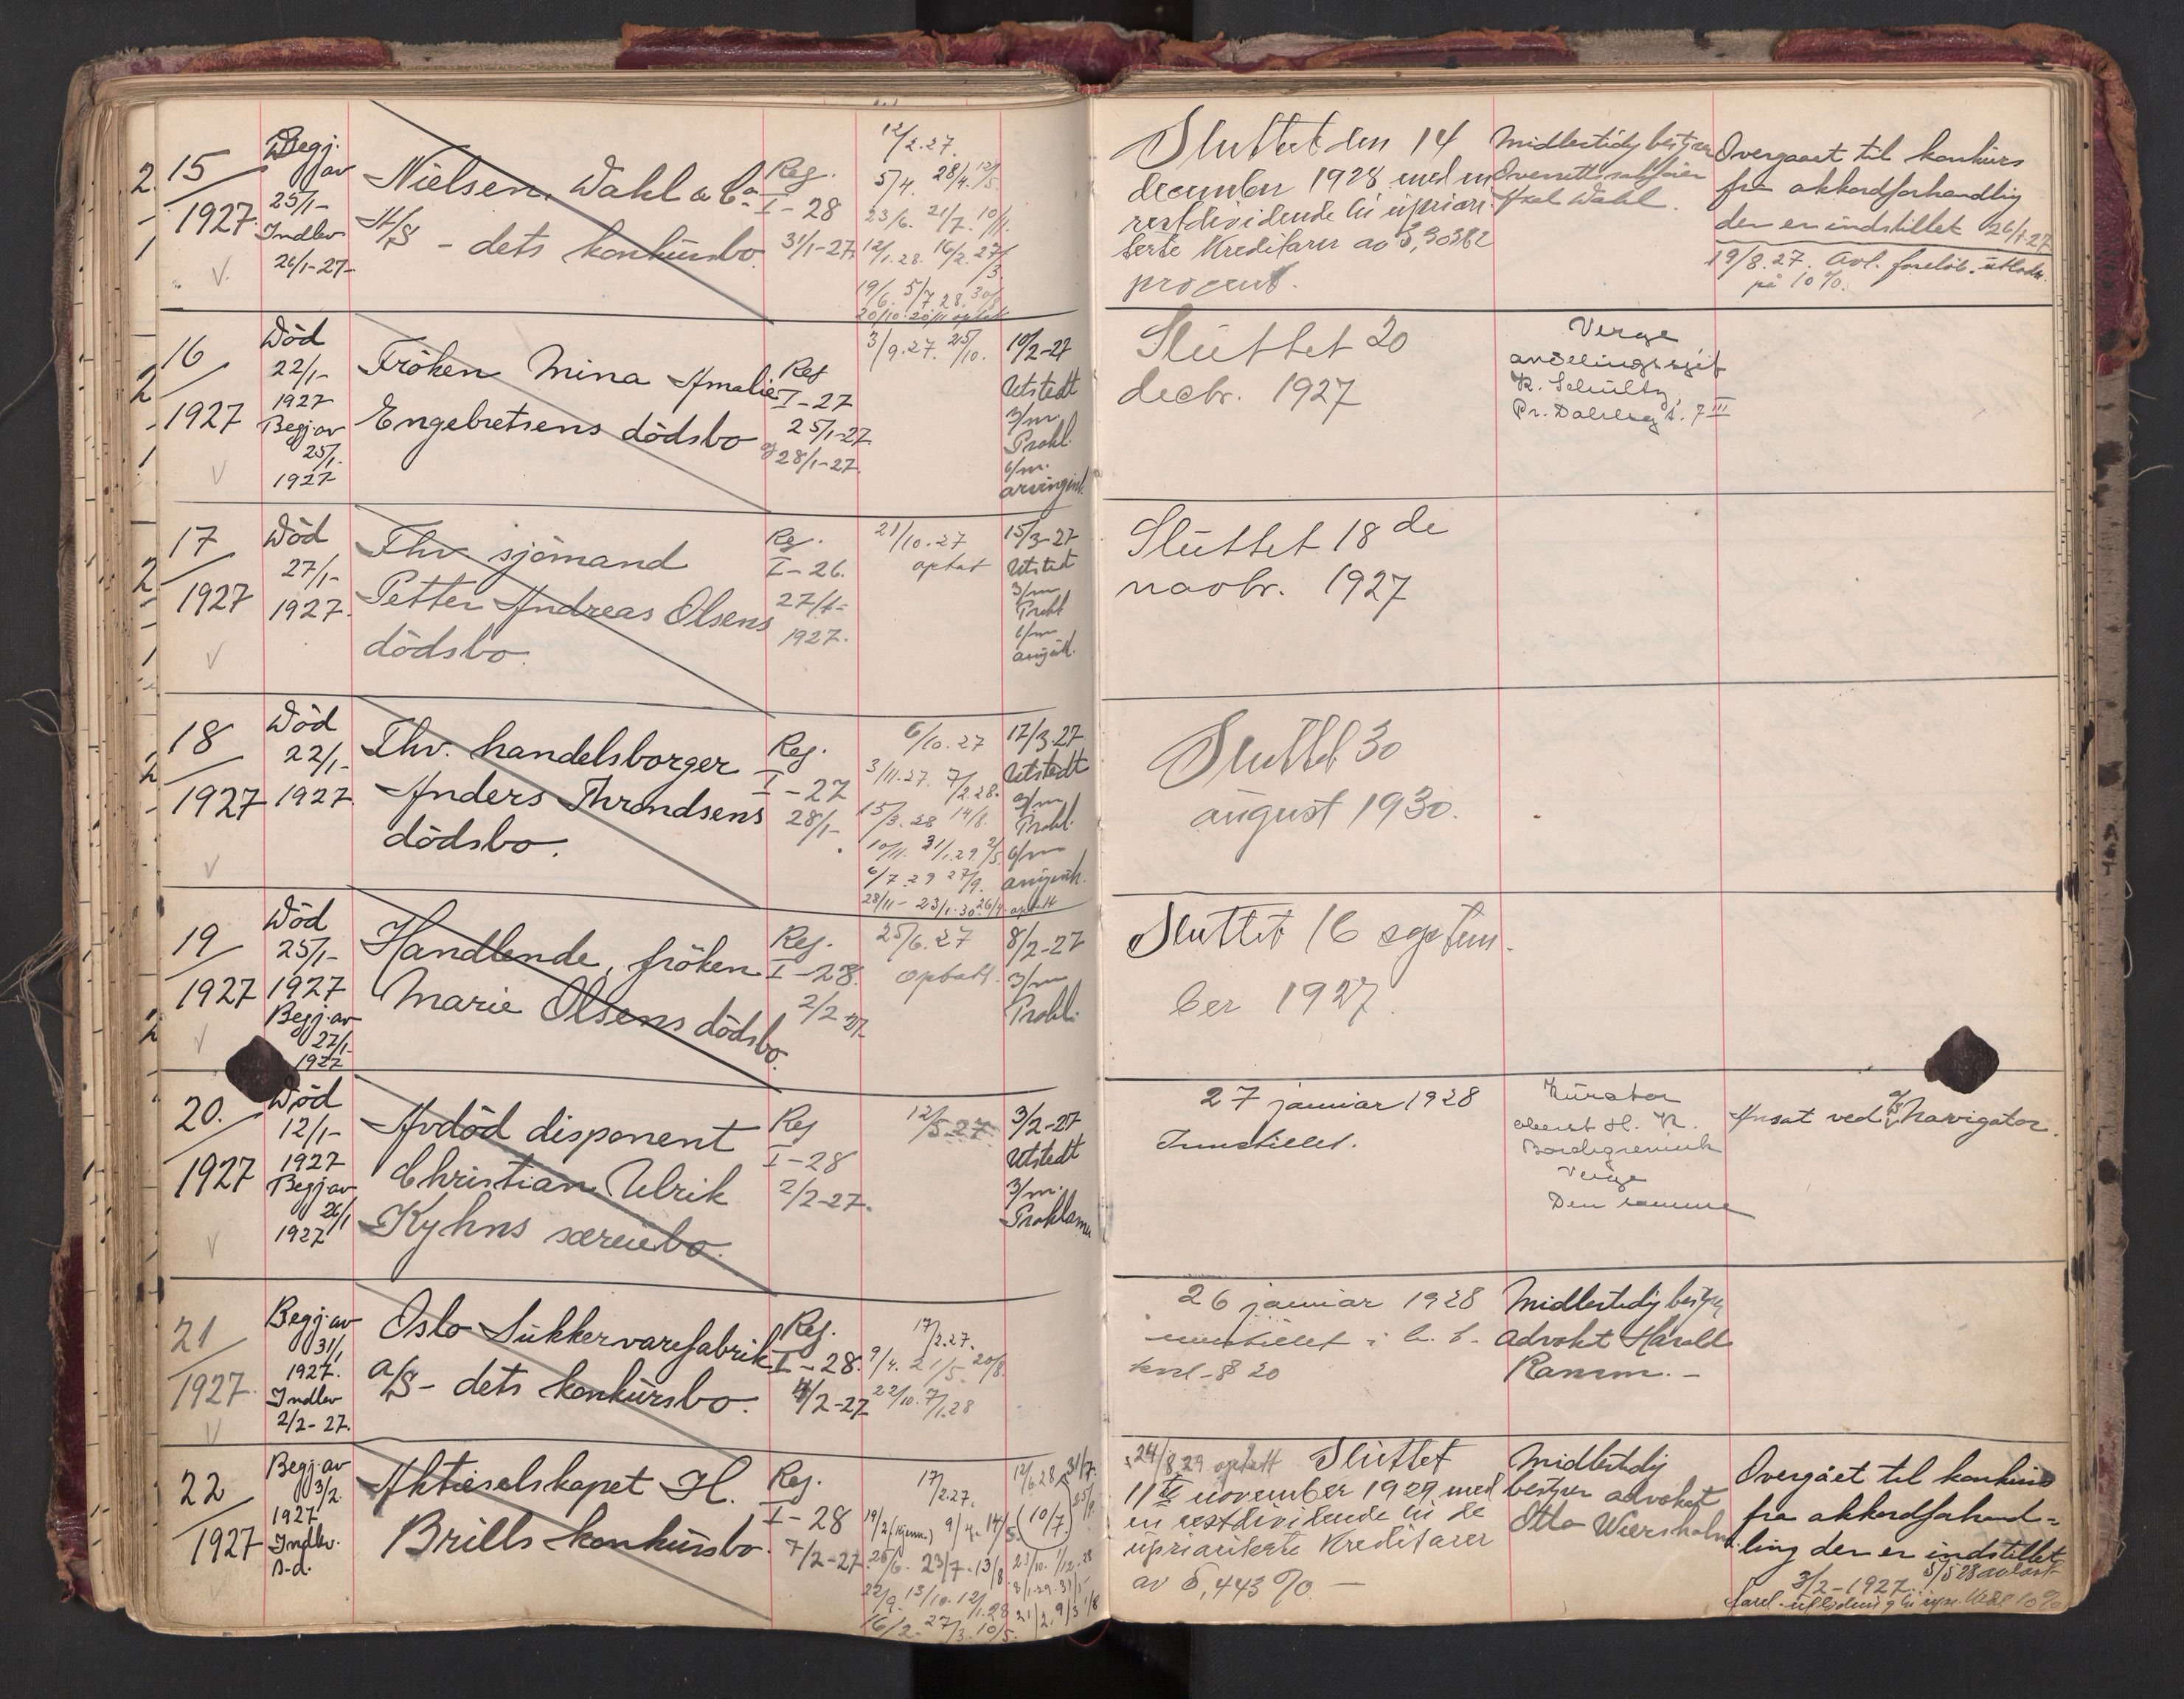 15
1927
Begj. av
25/1-
Indlev
26/1-27-
Nielsen, Wahl & Co
A/S - dets konkursbo.
Reg.
I-28
31/1-27.
12/2.27.
5/4. 28/4. 12/5.
23/6. 21/7. 10/11.
12/1.28. 16/2. 27/3
19/6. 5/7 28. 30/8
20/10. 20/11 optatt
Sluttet den 14
december 1928 med en
restdividende til uprior-
terte kreditorer av 3,30362
procent.
Midlertidig bestyrer
Overrettssakfører
Axel Wahl.
Overgaaet til konkurs
fra akkordforhandling
den er indstillet 26/1-27
19/8.27. Avl. foreløb. utlodn.
på 10%.
16
1927
Död
22/1-
1927
Begj av
25/1.
1927
Fröken Mina Amalie
Engebretsens dödsbo
Reg
I-27
25/1-27.
og 28/1-27.
3/9.27. 25/10.
10/2-27
Utstedt
3/m.
Prokl.
6/m.
arvingink
Sluttet 20
decbr. 1927
Verge
R. Schultz,
17
1927
Död
27/1-
1927.
Fhv sjömand
Petter Andreas Olsens
dödsbo.
Reg.
I-26.
27/1-
1927.
21/10.27
optat
15/3-27
Utsted
3/m
Prokl
6/m
Sluttet 18 de
novbr. 1927
18
1927
Död
22/1-
1927.
Fhv. handelsborger
Anders Throndsens
dödsbo.
Reg.
I-27
28/1-
6/10.27
3/11.27. 7/2.28.
15/3.28 14/8.
10/11. 31/1.29. 2/5.
6/7 29 27/9.
28/11- 23/1.30. 26/4. optatt
17/3.27
Utstedt
3/m
Prokl.
6/m
Sluttet 30
august 1930.
19
1927
Död
25/1-
1927
Begj. av
27/1-
1927
Handlende, fröken
Marie Olsens dödsbo.
Reg.
I-28.
2/2-27.
25/6.27
optatt.
8/2-27
3/m
Prokl.
Sluttet 16 septem-
ber 1927.
20.
1927
Död
12/1-
1927
Begj av
26/1
1927
Avdöd disponent
Christian Ulrik
Kyhns særeiebo.
Reg
I-28
2/2-27.
12/5-27.
3/2-27
Utstedt
3/m.
Proklama
27 januar 1928
Innstillet.
Kurator
oberst H. R.
Bordegrevink
Verge
Den samme
Ansat ved A/S Navigator.
21
1927.
Begj av
31/1
1927.
Indlev
2/2-27.
Oslo Sukkervarefabrik
A/S - dets konkursbo.
Reg.
I-28.
4/2-27
17/2.27.
9/4. 21/5. 20/8.
22/10. 7/1.28
26 januar 1928
innstillet i h. t.
knl-§ 20
Midlertidig bestyrer
advokat Harald
Ramm. -
22
1927
Begj. av
3/2.
1927
Indlev.
s.d.
Aktieselskapet H.
Brills konkursbo.
Reg.
I-28
7/2-27.
17/2.27.
19/2 (hjemm.) 9/4. 14/5. (10/7.)
25/6. 23/7. 13/8
22/9. 13/10. 12/1.28
16/2. 27/3. 10/5.
12/6.28.
23/10. 1/12.28
21/2. 9/3
24/8.29 optatt Sluttet
11te november 1929 med
en restdividende til de
uprioriterte kreditorer
av 5,443 % -
Midlertidig
bestyrer advokat
Otto Wiersholm
Overgået til konkurs
fra akkordforhand-
ling den er indstillet
3/2-1927.